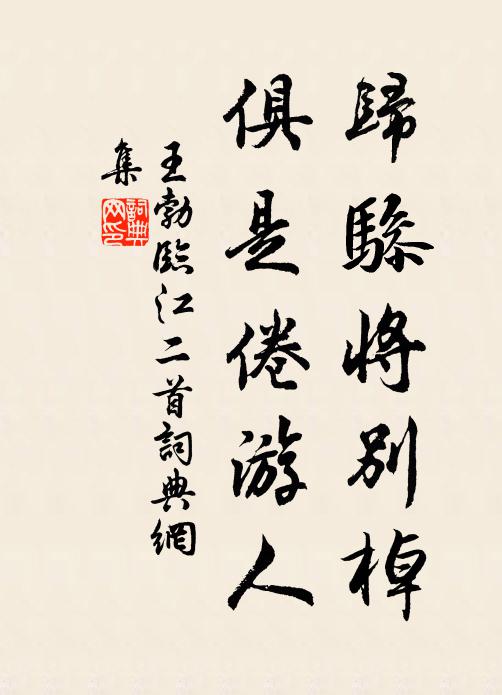 歸驂將別棹
俱是倦游人
王勃臨江二首詞典網
集
詞典
网印